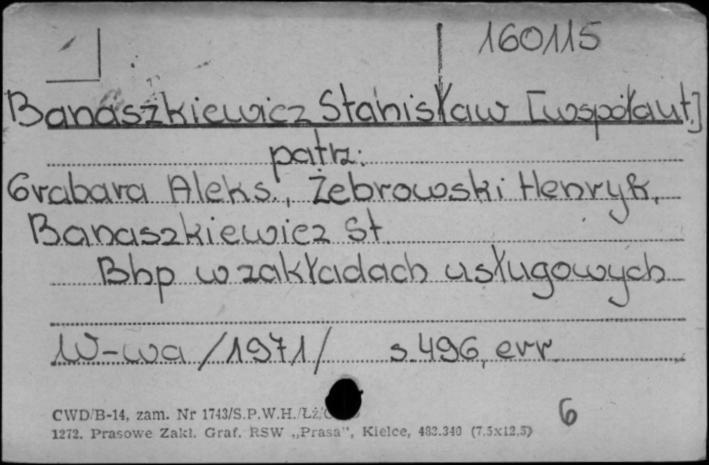 160115
Banaszkiewicz Stanisław [współaut.]
patrz:
Grabara Aleks., Żebrowski Henryk,
Banaszkiewicz St
Bhp w zakładach usługowych
W-wa /1971/ s. 496, err.
6
CWD/B-14, zam. Nr 1743/S.P.W.H./Łż/
1272. Prasowe Zakł. Graf. RSW „Prasa", Kielce, 483.340 (7.5x12.5)